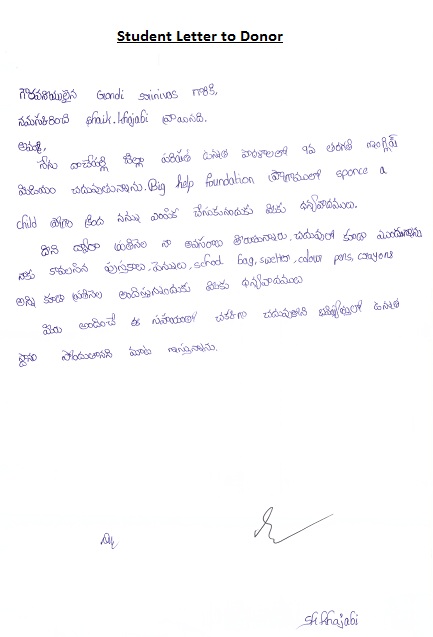 Student Letter to Donor
గౌరవనీయులైన Gandi srinivas గారికి,
నమస్కరించి Shaik.khajabi వ్రాయునది.
నేను దాచేపల్లి జిల్లా పరిషత్ ఉన్నత పాఠశాలలో 9వ తరగతి ఇంగ్లీష్
మీడియం చదువుతున్నాను. Big help foundation ప్రోగ్రాములో sponce a
child ద్వారా క్రింద నన్ను ఎంపిక చేసుకున్నందుకు మీకు ధన్యవాదములు.
దీని ద్వారా ప్రతినెల నా అవసరాలు తీరుతున్నాయి, చదువులో కూడా ముందున్నాను
నాకు కావలసిన పుస్తకాలు, పెన్నులు, school bag, sweter, colour pens, crayons
అన్ని కూడా ప్రతినెల అందిస్తున్నందుకు మీకు ధన్యవాదములు
మీరు అందించే ఈ సహాయంతో చక్కగా చదువుకుని భవిష్యత్తులో ఉన్నత
స్థానం పొందుతానని మాట ఇస్తున్నాను.
sk.khajabi